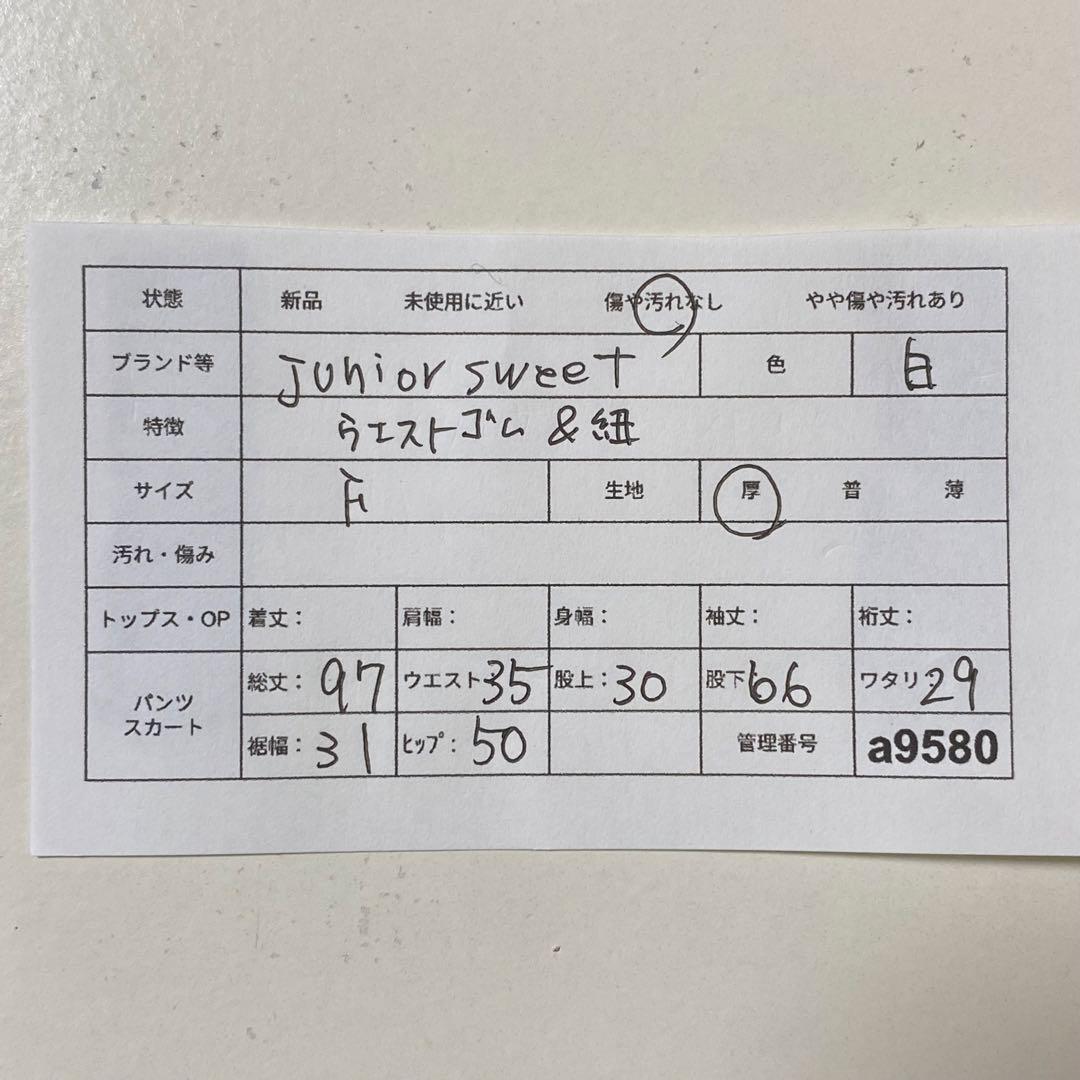 状態 新品 未使用に近い 傷や汚れなし やや傷や汚れあり
ブランド等 junior sweet 色 白
特徴 ウエストゴム & 紐
サイズ F 生地 厚 普 薄
汚れ・傷み
トップス・OP 着丈： 肩幅： 身幅： 袖丈： 裄丈：
パンツ
スカート
総丈：97 ウエスト35 股上：30 股下66 ワタリ29
裾幅：31 ﾋｯﾌﾟ：50 管理番号 a9580